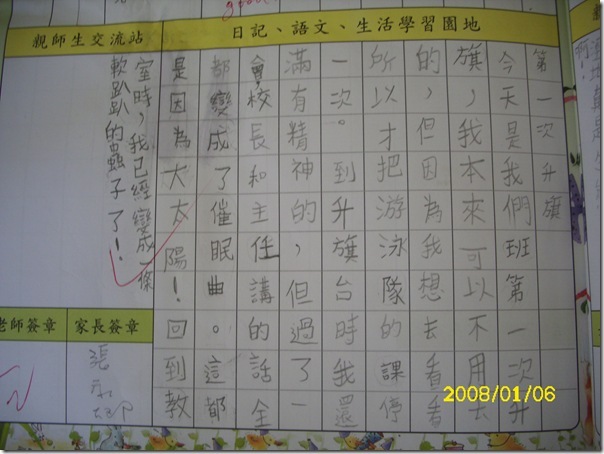 日記、語文、生活學習園地
第一次升旗
今天是我們班第一次升
旗，我本來可以不用去
的，但因為我想去看看
所以才把游泳隊的課停
一次。到升旗台時我還
滿有精神的，但過了一
會，校長和主任講的話全
都變成了催眠曲。這都
是因為大太陽！回到教
親師生交流站
室時，我已經變成一條
軟趴趴的蟲子了！
家長簽章
老師簽章
2008/01/06